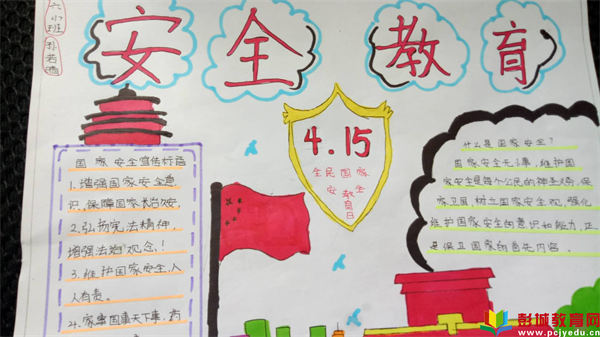 六小班
安全教育
4.15
全民国家
安全
教育
日
国家安全宣传标语
1.增强国家安全意
识,保障国家长治久安,
2.弘扬宪法精神,
增强法治观念,!
3.维护国家安全,人
人有责。
4.家事国事天下事,
什么是国家安全?
国家安全无小事,维护国
家安全是每个公民的神圣义务,保
家卫国,树立国家安全观,强化
维护国家安全的意识和能力,正
是保卫国家的首先内容.
彭城教育网
www.pcjyedu.cn